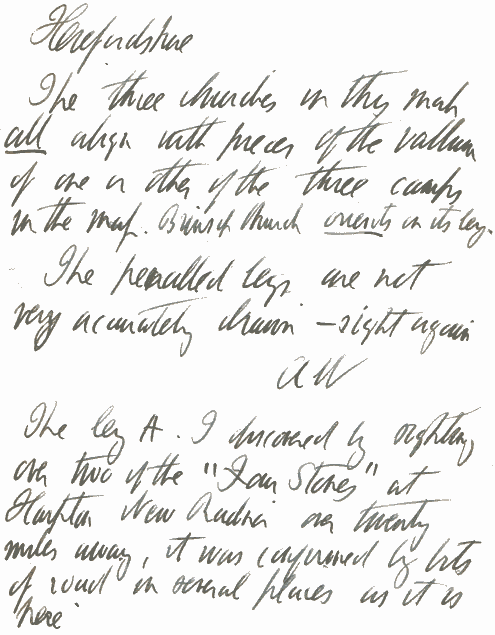 Herefordshire
The three churches in this map
all align with pieces of the vallum
of one or other of the three camps
in the map. Brinsop Church orients on its ley.
The pencilled leys are not
very accurately drawn – sight again
AW
The ley A. I discovered by sighting
over two of the "Four Stones" at
Harpton New Radnor over twenty
miles away, it was confirmed by bits
of road in several places as it is
here